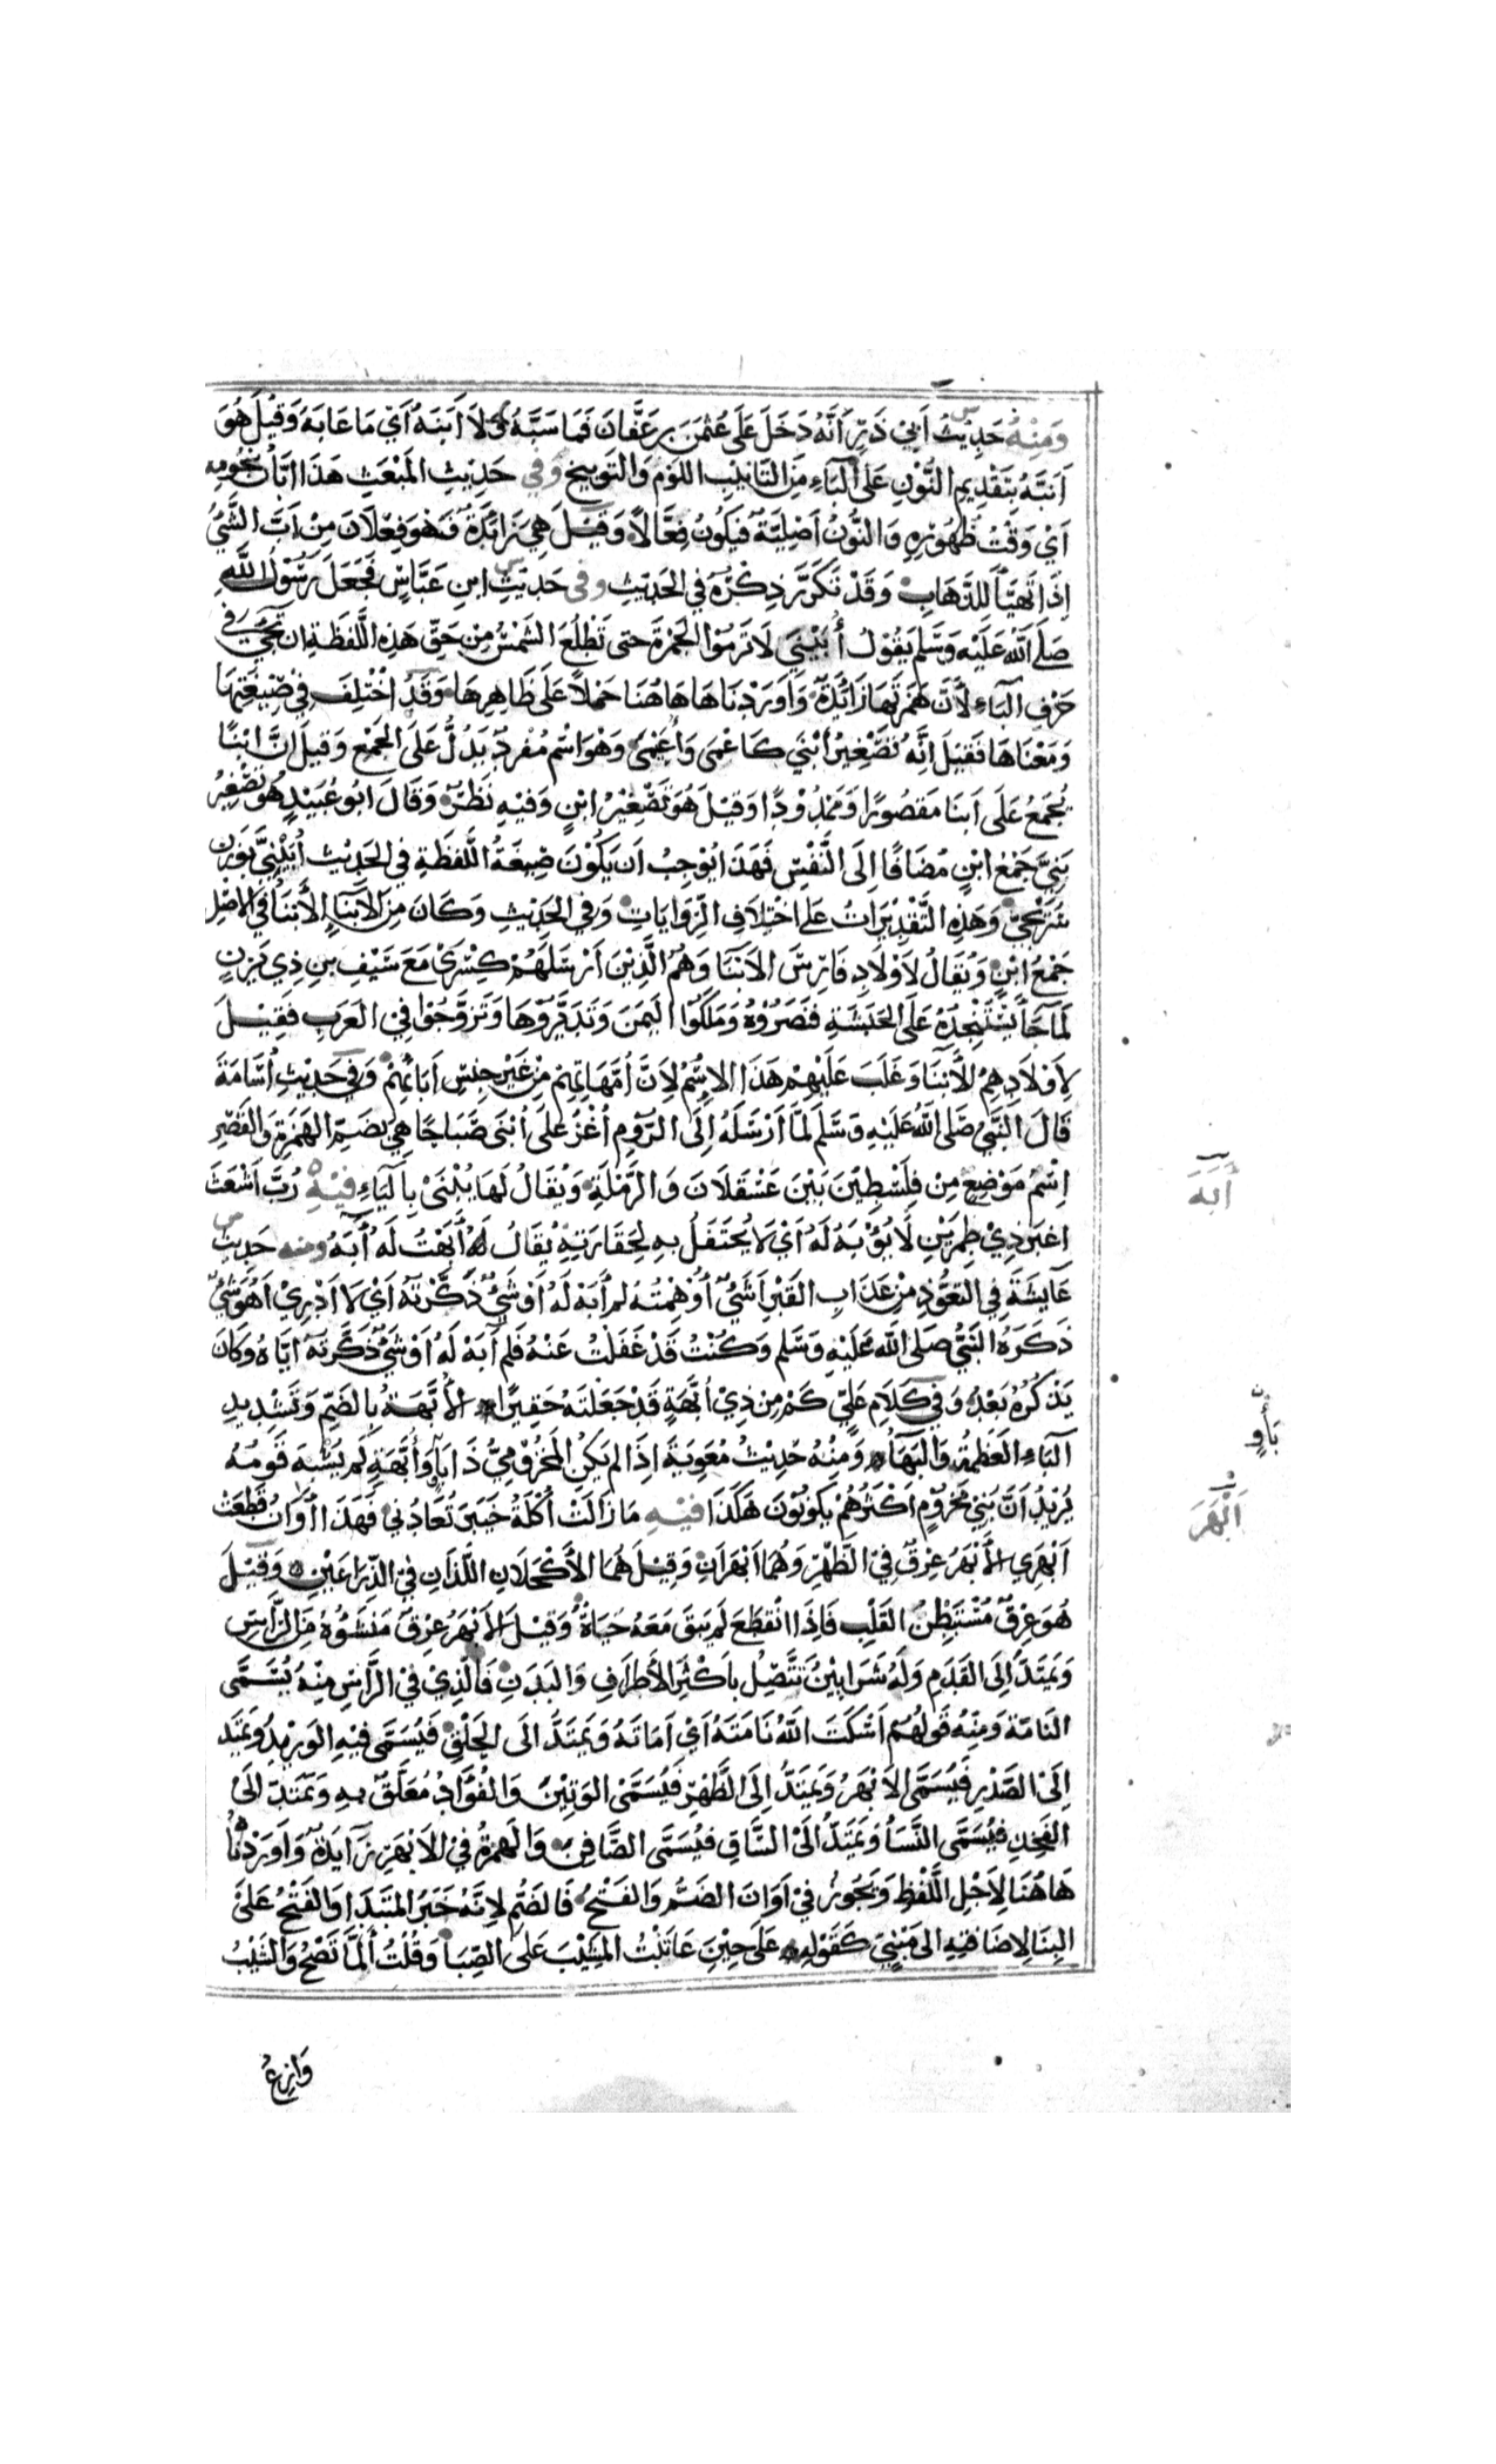 وَمِنْهُ حَدِيْثُ اَبِيْ ذَرٍّ اَنَّهُ دَخَلَ عَلَى عُثْمٰنَ بنِ عَفَّانَ فَمَا سَبَّهُ وَلَا اَبَنَهُ اَيْ مَا عَابَهُ وَقِيْلَ هُوَ
اَنَّبَهُ بِتَقْدِيمِ النُّوْنِ عَلَى البَاءِ مِنَ التَّانِيْبِ اللَّوْمِ وَالتَّوبِيخِ وَفِي حَدِيثِ المَبْعَثِ هَذَا اِبَّانُ نُجُومِهِ
اَيْ وَقْتُ ظُهُوْرِهِ وَالنُّوْنُ اَصْلِيَّةٌ فَيَكُونُ فِعَّالًا وَقِيْلَ هِيَ زَائِدَةٌ فَهُوَ فِعْلَانَ مِنْ اَبَّ الشَّيْءُ
اِذَا تَهَيَّأَ لِلذَّهَابِ وَقَدْ تَكَرَّرَ ذِكْرُهُ فِي الحَدِيْثِ وَفِى حَدِيْثِ ابْنِ عَبَّاسٍ فَجَعَلَ رَسُوْلُ اللَّهِ
صَلَى اللَّهُ عَلَيْهِ وَسَلَّم يَقُوْلُ أُبَيْنِيَ لَا تَرْمُوْا الجَمْرَةَ حَتى تَطْلُعَ الشَّمْسُ مِنْ حَقِّ هَذِهِ اللَّفْظَةِ ان تَجِيَ في
حَرْفِ البَاءِ لأَنَّ هَمْزَتَهَا زَائِدَةٌ وَاَوْرَدْنَاهَا هَاهُنَا حَمْلًا عَلَى ظَاهِرِهَا وَقَدْ اخْتُلِفَ فِي صِيْغَتِهَا
وَمَعْنَاهَا فَقِيْلَ اِنَّهُ تَصْغِيْرُ أَبْنَى كَاَعْمَى وَأُعَيْمَى وَهْوَ اسْمٌ مُفْرَدٌ يَدُلُّ عَلَى الجَمْعِ وَقِيلَ اِنَّ ابْنًا
يُجْمَعُ عَلَى اَبْنَا مَقْصُورًا وَمَمْدُوْدًا وَقِيْلَ هُوَ تَصْغِيْرُ ابْنٍ وَفِيْهِ نَظَرٌ وَقَالَ ابُو عُبَيْدٍ هُوَ تَصْغِيْرُ
بَنِيَّ جَمْعُ ابْنٍ مُضَافًا اِلَى النَّفْسِ فَهَذَا يُوْجِبُ اَنْ يَكُوْنَ صِيْغَةُ اللَّفْظَةِ فِي الحَدِيْثِ أُبَيْنِيَّ بِوَزْنِ
سُرَيْجِيّ وَهَذِهِ التَّقْدِيْرَاتُ عَلَى اخْتِلَافِ الرِّوَايَاتِ وَفِي الحَدِيْثِ وَكَانَ مِنَ الاَبْنَاءِ الأَبْنَاءُ فِي الاَصْلِ
جَمْعُ ابْنٍ وَيُقَالُ لِاَوْلَادِ فَارِسَ الاَبْنَا وَهُمْ الَّذِيْنَ اَرْسَلَهُمْ كِسْرَىْ مَعَ سَيْفِ بنِ ذِي يَزَنٍ
لَمَّا جَأَ يَسْتَنْجِدُهُ عَلَى الحَبَشَةِ فَنَصَرُوْهُ وَمَلَكُوْا اليَمَنَ وَتَدَيَّرُوْهَا وَتَزَوَّجُوْا فِي العَرَبِ فَقِيْلَ
لِاَوْلَادِهِمُ الأَبْنَا وَغَلَبَ عَلَيْهِمْ هَذَا الاِسْمُ لِاَنَّ اُمَّهَاتِهِمْ مِنْ غَيْرِ جِنْسِ اَبَائِهِمْ وَفِي حَدِيْثِ اُسَامَةَ
قَالَ النَّبِيُّ صَلَى اللَّهُ عَلَيْهِ وَسَلَّمَ لَمَّا أَرْسَلَهُ اِلَى الرُّوْمِ اُغْزُ عَلَى اُبْنَى صَبَاحًا هِيَ بِضَمِّ الهَمْزَةِ وَالقَصْرِ
اِسْمُ مَوْضِعٍ مِنْ فِلَسْطِيْنَ بَيْنَ عَسْقَلَانَ وَالرَّمْلَةِ وَيُقَالُ لَهَا يُبْنَىْ بِاليَاءِ فِيْهِ رُبَّ اَشْعَثَ
اغْبَرَ ذِيْ طِمْرَيْنِ لَا يُؤْبَهُ لَهُ اَيْ لَا يُحْتَفَلُ بِهِ لِحَقَارَتِهِ يُقَالُ اَبَهْتُ لَهُ أبَهُ وَمِنه حَدِيْثُ
عَايِشَةَ فِي التَّعَوُّذِ مِنْ عَذَابِ القَبْرِ اَشَيْءٌ اُوْهِمْتُهُ لَمْ أَبَهْ لَهُ اَوْ شَيْءٌ ذَكَّرْتُهُ اَيْ لَا اَدْرِيْ اَهُوَ شَيْءٌ
ذَكَرَهُ النَّبِيُّ صَلَى اللَّه عَلَيْهِ وَسَلَّم وَكُنْتُ قَدْ غَفَلْتُ عَنْهُ فَلَم آبَهْ لَهُ اَوْ شَيْءٌ ذَكَّرْتُهُ اِيَّاهُ وَكَانَ
يَذْكُرُهُ بَعْدُ وَفِي كَلَامِ عَلِيٍّ كَمْ مِنْ ذِيْ اُبَّهَةٍ قَدْ جَعَلْتُهُ حَقِيْرًا الأُبَّهَةُ بِالضَّمِّ وَتَشْدِيدِ
البَاءِ العَظَمَةُ وَالبَهَاُ وَمِنْهُ حَدِيْثُ مُعٰوِيَةَ اِذَا لَم يَكُنِ المَخْزُوْمِيُّ ذَا بَأْوٍ وَأُبَّهَةٍ لَم يُشْبِهْ قَوْمَهُ
يُرِيْدُ اَنَّ بَنِيْ مَخْزُوْمٍ اَكْثَرُهُمْ يَكُوْنُوْنَ هَكَذَا فِيْهِ مَا زَالَتْ اُكْلَةُ خَيْبَرَ تُعَادُّنِي فَهَذَا اَوَانُ قَطَعَتْ
اَبْهَرِي الأَبْهَرُ عِرْقٌ فِيْ الظَّهْرِ وَهُمَا اَبْهَرَانِ وَقِيْلَ هُمَا الأَكْحَلَانِ اللَّذَانِ فِيْ الذِّرَاعَيْنِ وَقِيْلَ
هُوَ عِرْقٌ مُسْتَبْطِنُ القَلْبِ فَاِذَا انْقَطَعَ لَم يَبْقَ مَعَهُ حَيَاةٌ وَقِيْلَ الاَبْهَرُ عِرْقٌ مَنْشَؤُهُ مِنَ الرَّأْسِ
وَيَمْتَدُّ اِلَى القَدَمِ وَلَهُ شَرَايِيْنُ تَتَّصِلُ بِاَكْثَرِ الأَطْرَافِ وَالبَدَنِ فَالَّذِيْ فِيْ الرَّاسِ مِنْهُ يُسَمَّى
النَامَةَ وَمِنْهُ قَولُهُمْ اَسْكَتَ اللَّهُ نَامَتَهُ اَيْ اَمَاتَهُ وَيَمْتَدُّ الَى الحَلْقِ فَيُسَمَّى فِيْهِ الوَرِيْدُ وَيَمْتَدُّ
اِلَىْ الصَّدْرِ فَيُسَمَّى الاَبْهَرُ وَيَمْتَدُّ اِلَى الظَّهْرِ فَيُسَمَّىْ الوَتِيْنَ وَالفُؤَادُ مُعَلَّقٌ بِهِ وَيَمْتَدُّ الَىْ
الفَخِذِ فَيُسَمَّى النَّسَأ وَيَمْتَدُّ الَىْ السَّاقِ فَيُسَمَّى الصَّافِنَ وَالهَمزَةُ فِيْ الاَبْهَرِ زَايِدَةٌ وَاَورَدْنَاُ
هَاهُنَا لِاَجْلِ اللَّفْظِ وَيَجُوزُ فِيْ اَوَانَ الضَّمُّ وَالفَتْحُ فَالضَّمُّ لِاَنَّهُ خَبَرُ المُبْتَدَا وَالفَتْحُ عَلَى
البِنَا لِاِضَافَتِهِ الى مَبْنِيّ كَقَوْلِهِ عَلَى حِيْنِ عَاتَبْتُ المَشِيْبَ عَلَى الصِّبَا وَقُلْتُ أَلَمَّا تَصْحُ وَالشَّيْبُ
وَازِعُ
اَبَهَ
بَأوٍ
اَبْهَرَ